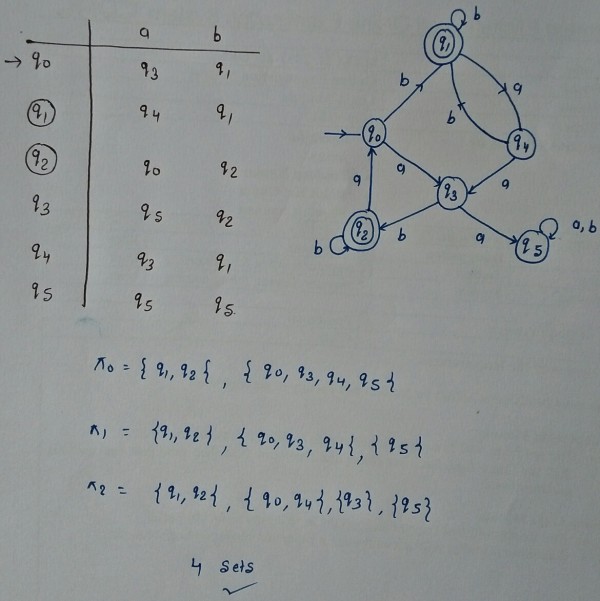 a b
→ q0 q3 q1
q1 q4 q1
q2 q0 q2
q3 q5 q2
q4 q3 q1
q5 q5 q5
b
q1
b
a
b
q0
q4
a
a
q3
a
q2
b
b
a
q5
a,b
π0 = { q1, q2 { , { q0, q3, q4, q5 {
π1 = { q1, q2 { , { q0, q3, q4 {, { q5 {
π2 = { q1, q2 { , { q0, q4 {, {q3}, {q5}
4 sets